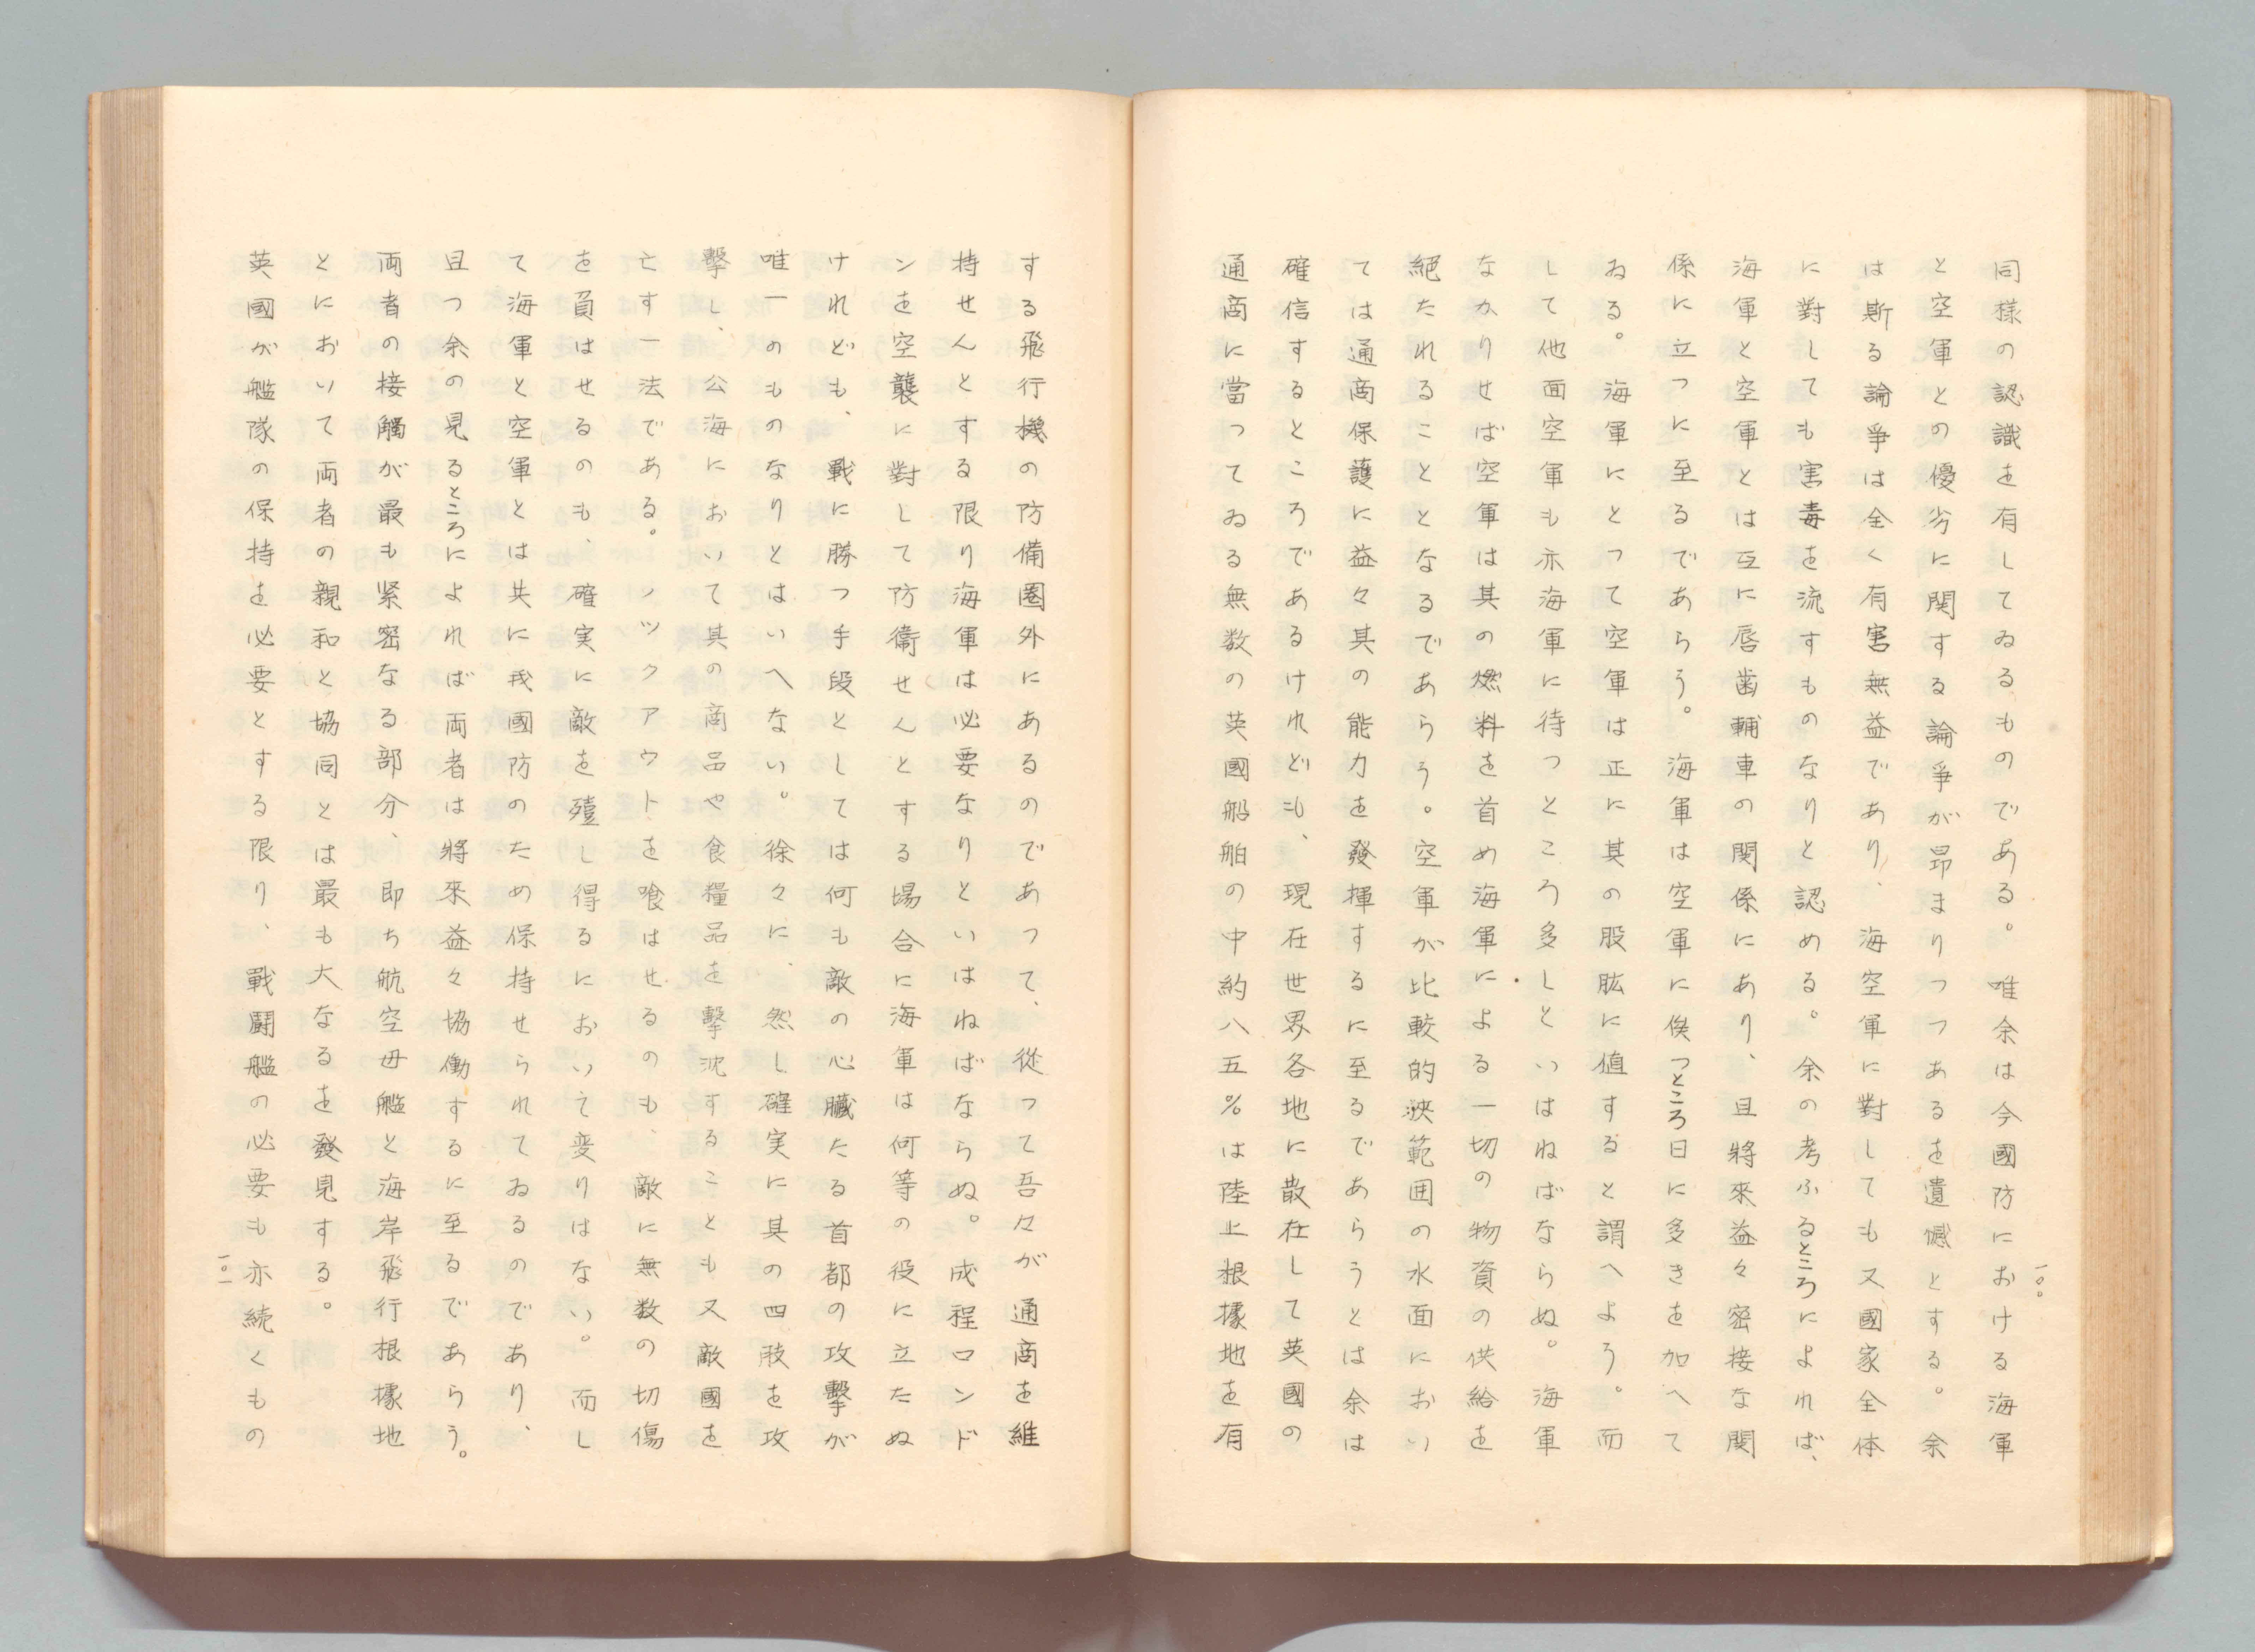 同様の認識を有してゐるものである。唯余は今國防における海軍
と空軍との優劣に関する論爭が昂まりつつあるを遺憾とする。余
は斯る論爭は全く有害無益であり、海空軍に對しても又國家全体
に對しても害毒を流すものなりと認める。余の考ふるところによれば、
海軍と空軍とは互に唇歯輔車の関係にあり、且將來益々密接な関
係に立つに至るであらう。海軍は空軍に俟つところ日に多きを加へて
ゐる。海軍にとつて空軍は正に其の股肱に値すると謂へよう。而
して他面空軍も亦海軍に待つところ多しといはねばならぬ。海軍
なかりせば空軍は其の燃料を首め海軍による一切の物資の供給を
絕たれることとなるであらう。空軍が比較的狹範囲の水面におい
ては通商保護に益々其の能力を發揮するに至るであらうとは余は
確信するところであるけれども、現在世界各地に散在して英國の
通商に當つてゐる無数の英國船舶の中約八五％は陸上根據地を有
一〇〇
する飛行機の防備圏外にあるのであつて、從つて吾々が通商を維
持せんとする限り海軍は必要なりといはねばならぬ。成程ロンド
ンを空襲に對して防衞せんとする場合に海軍は何等の役に立たぬ
けれども、戰に勝つ手段としては何も敵の心臟たる首都の攻擊が
唯一のものなりとはいへない。徐々に、然し確実に其の四肢を攻
擊し、公海において其の商品や食糧品を擊沈することも又敵國を
亡す一法である。ノックアウトを喰はせるのも、敵に無数の切傷
を負はせるのも、確実に敵を殪し得るにおいて変りはない。而し
て海軍と空軍とは共に我國防のため保持せられてゐるのであり、
且つ余の見るところによれば両者は將來益々協働するに至るであらう。
両者の接觸が最も紧密なる部分、即ち航空母艦と海岸飛行根據地
とにおいて両者の親和と協同とは最も大なるを発見する。
英國が艦隊の保持を必要とする限り、戰鬪艦の必要も亦続くもの
一〇一